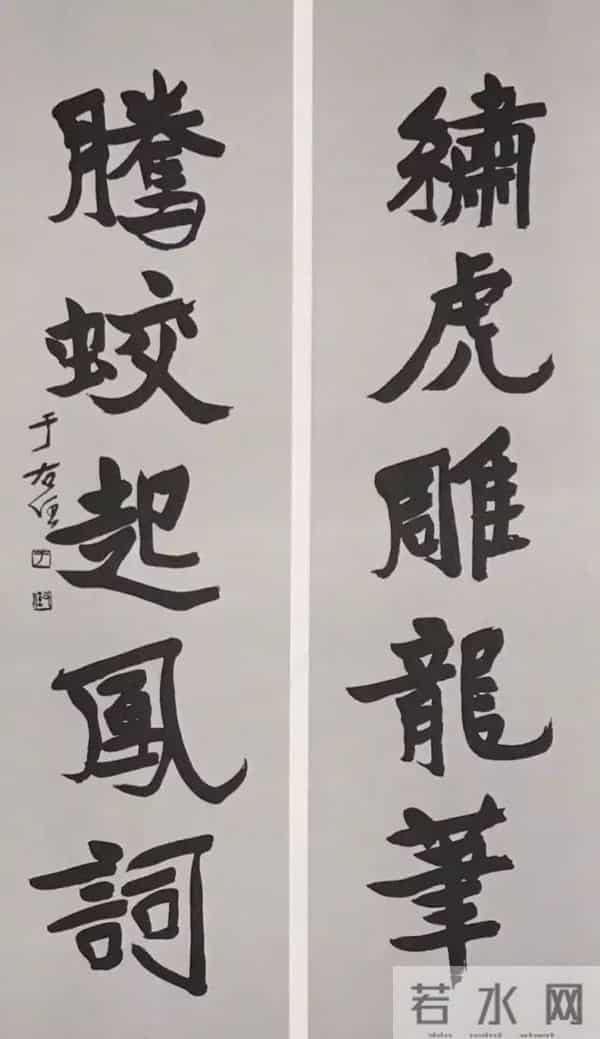 繡虎雕龍筆
騰蛟起鳳詞
于右任
若水网